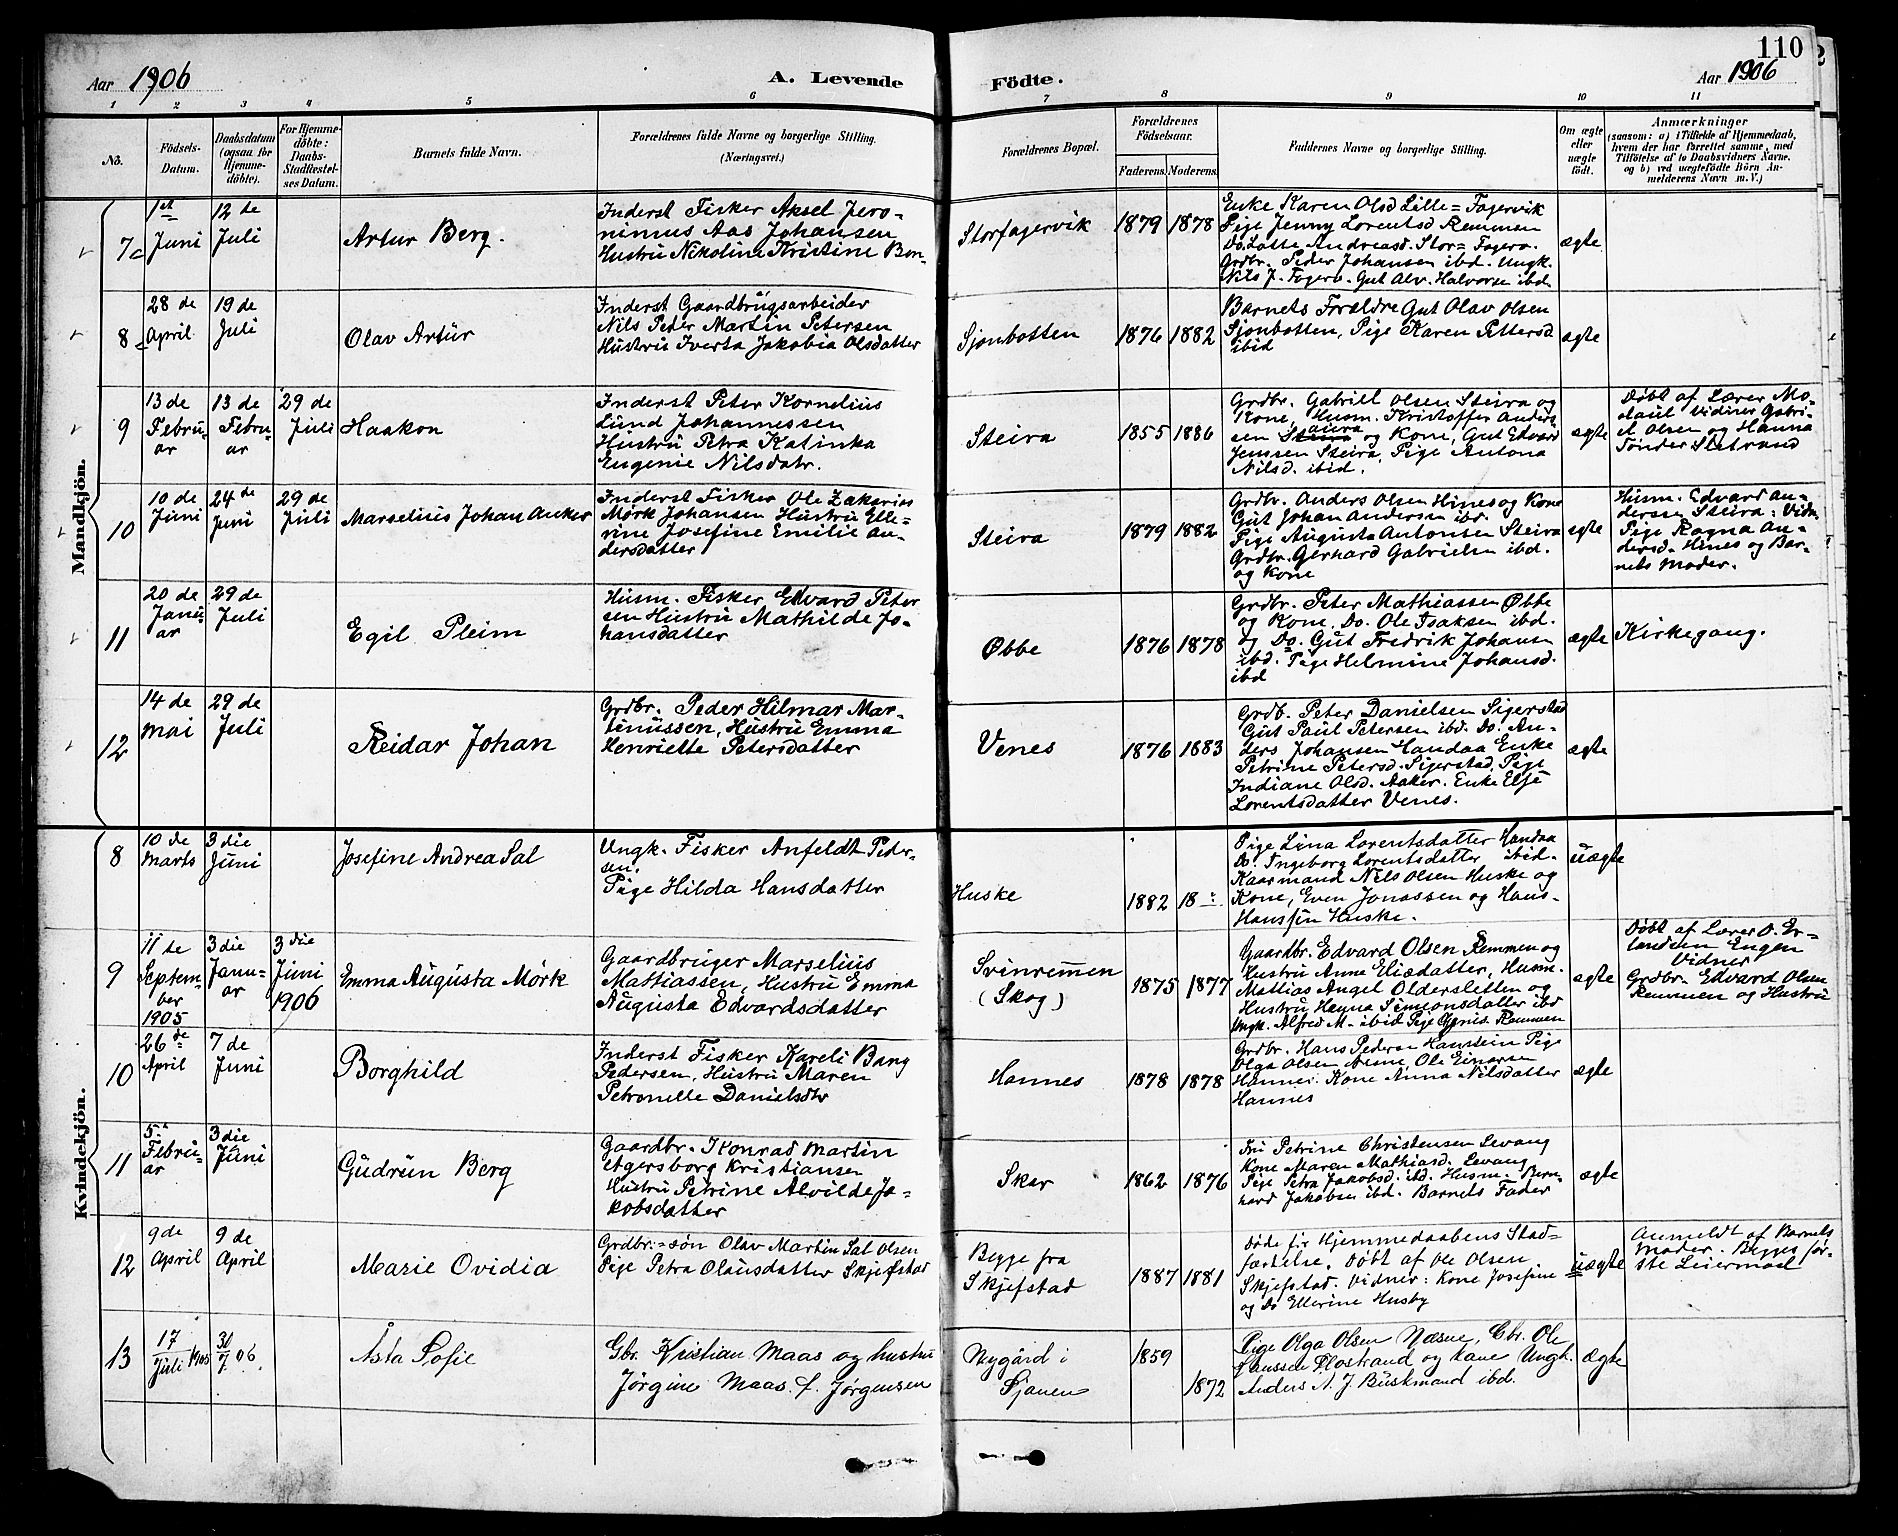 110
Aar 1906 A. Levende Födte. Aar 1906
1 2 3 4 5 6 7 8 9 10 11
No.
Födsels-Datum.
Daabsdatum (ogsaa for Hjemme-döbte).
For Hjemme-döbte: Daabs-Stadfæstel-ses Datum.
Barnets fulde Navn.
Forældrenes fulde Navne og borgerlige Stilling. (Næringsvei.)
Forældrenes Bopæl.
Forældrenes Födselsaar.
Faderens. Moderens.
Faddernes Navne og borgerlige Stilling.
Om ægte eller uægte födt.
Anmærkninger
(saasom: a) i Tilfælde af Hjemmedaab, hvem der har forrettet samme, med Tilföielse af to Daabsvidners Navne, og b) ved uægtefödte Börn Anmelderens Navn m. V.)
Mandkjön.
7
1st Juni
12 de Juli
Artur Berg.
Inderst Fisker Aksel Jero-
nimus Aas Johansen
Hustru Nikoline Kristine Ber-
Storfagervik
1879 1878
Enke Karen Olsd Lille=Fagervik
Pige Jenny Lorentsd Remmen
Do. Lotte Andreasd. Stor=Fagerv.
Grdbr. Peder Johansen ibd. Ungk.
Nils J. Fagerv. Gut Alv. Halvorse ibd.
ægte
8
28 de April
19 de Juli
Olav Artur
Inderst Gaardbrugsarbeider
Nils Peter Martin Petersen
Hustru Iverta Jakobia Olsdatter
Sjonbotten
1876 1882
Barnets Forældre Gut Olav Olsen
Sjonbotten, Pige Karen Pettersd
ibid
ægte
9
13 de Febru-ar
13 de Febru-ar
29 de Juli
Haakon
Inderst Peter Kornelius
Lund Johannessen
Hustru Petra Katinka
Eugenie Nilsdatr.
Steira
1855 1886
Grdbr. Gabriel Olsen Steira og
Kone, Husm. Kristoffer Anders
sen Steira og Kone, Gut Edvard
Jenssen Steira, Pige Antona
Nilsd. ibid.
ægte
Døbt af Lærer Mo-
Vidner Gabri-
el Olsen og Hanna
Tønder
10
10 de Juni
24 de Juni
29 de Juli
Marselius Johan Anker
Inderst Fisker Ole Zakarias
Mørk Johansen Hustru Elle-
rine Josefine Emilie An-
dersdatter
Steira
1879 1882
Grdbr. Anders Olsen Hines og Kone
Gut Johan Andersen ibd.
Pige Augusta Antonsen Steira
Grdbr. Gerhard Gabrielsen ibd.
og Kone
ægte
Husm. Edvard An-
derssen Steira: Vidn.
Pige Ragna An-
dersd. Hines og Bar-
nets Moder.
11
20 de Janu-ar
29 de Juli
Egil Pleim
Husm. Fisker Edvard Peter
sen Hustru Mathilde Jo-
hansdatter
Øbbe
1876 1878
Grdbr. Peter Mathiassen Øbbe
og Kone, Do. Ole Isaksen ibd.
og Do. Gut Fredrik Johansen
ibd. Pige Helmine Johansd.
ibd
ægte
Kirkegang.
12
14 de Mai
29 de Juli
Reidar Johan
Grdbr. Peder Hilmar Mar-
tinussen, Hustru Emma
Henriette Petersdatter
Venes
1876 1883
Grdb. Peter Danielsen Sigerstad
Gut Paul Petersen ibd. Do. An-
ders Johansen Handaa Enke
Petrine Petersd. Sigerstad, Pige
Indiane Olsd. Aaker. Enke Else
Lorentsdatter Venes.
ægte
Kvindekjön.
8
10 de Marts
3 die Juni
Josefine Andrea Sal
Ungk. Fisker Anfeldt Peder-
sen.
Pige Hilda Hansdatter
Huske
1882 18
Pige Lina Lorentsdatter Handaa
Do. Ingeborg Lorentsdatter ibid.
Kaarmand Nils Olsen Huske og
Kone, Even Jonassen og Hans
Hanssen Huske.
uægte
9
11 te Septem-ber 1905
3 die Janu-ar
3 die Juni 1906
Emma Augusta Mørk
Gaardbruger Marselius
Mattiassen, Hustru Emma
Augusta Edvardsdatter
Svinremmen
(Skog)
1875 1877
Gaardbr. Edvard Olsen Remmen og
Hustru Anne Eliasdatter, Husm.
Mattias Angel Oldersletten og
Hustru Hanna Simonsdatter ibd
Ungk. Alfred M- ibid Pige Agnis Remmen
ægte
Døbt af Lærer O. Er-
landsen Engen
Vidner
Grdbr. Edvard Olsen
Remmen og Hustru
10
26 de April
7 de Juni
Borghild
Inderst Fisker Kareli Bang
Pedersen, Hustru Maren
Petronelle Danielsdtr
Hannes
1878 1878
Grdbr. Hans Pedersen Haustein Pige
Olga Olsen Ole Einarsen
Hannes. Kone Anna Nilsdatter
Hannes
ægte
11
5. Febru-ar
3 die Juni
Gudrun Berg
Gaardbr. Konrad Martin
Agersborg Kristiansen
Hustru Petrine Alvilde Ja-
kobsdatter
Skar
1862 1876
Fru Petrine Christensen Levang
Kone Maren Mathiasd. Levang
Pige Petra Jakobsd. ibd. Husm. Bern-
hard Jakobsen ibd. Barnets Fader
ægte
12
9 de April
9 de April
Marie Ovidia
Grdbr.=søn Olav Martin Sal Olsen
Pige Petra Olausdatter Skjefstad
Begge fra
Skjefstad
1887 1881
Døde før Hjemmedaabens Stad=
fæstelse. Døbt af Ole Olsen
Skjefstad. Vidner: Kone Josefine
og Do Ellerine Husby
uægte
Anmeldt af Barnets
Moder. Begges før-
ste Leiermaal
13
17/Juli 1905
30/7 06.
Åsta Sofie
Gbr. Kristian Maas og hustru
Jørgine Maas f. Jørgensen
Nygård i
Sjonen
1859 1872
Pige Olga Olsen Næsne, Gbr. Ole
Hanssen Flostrand og kone Ungk.
Anders A. J. Buskmand ibd.
ægte